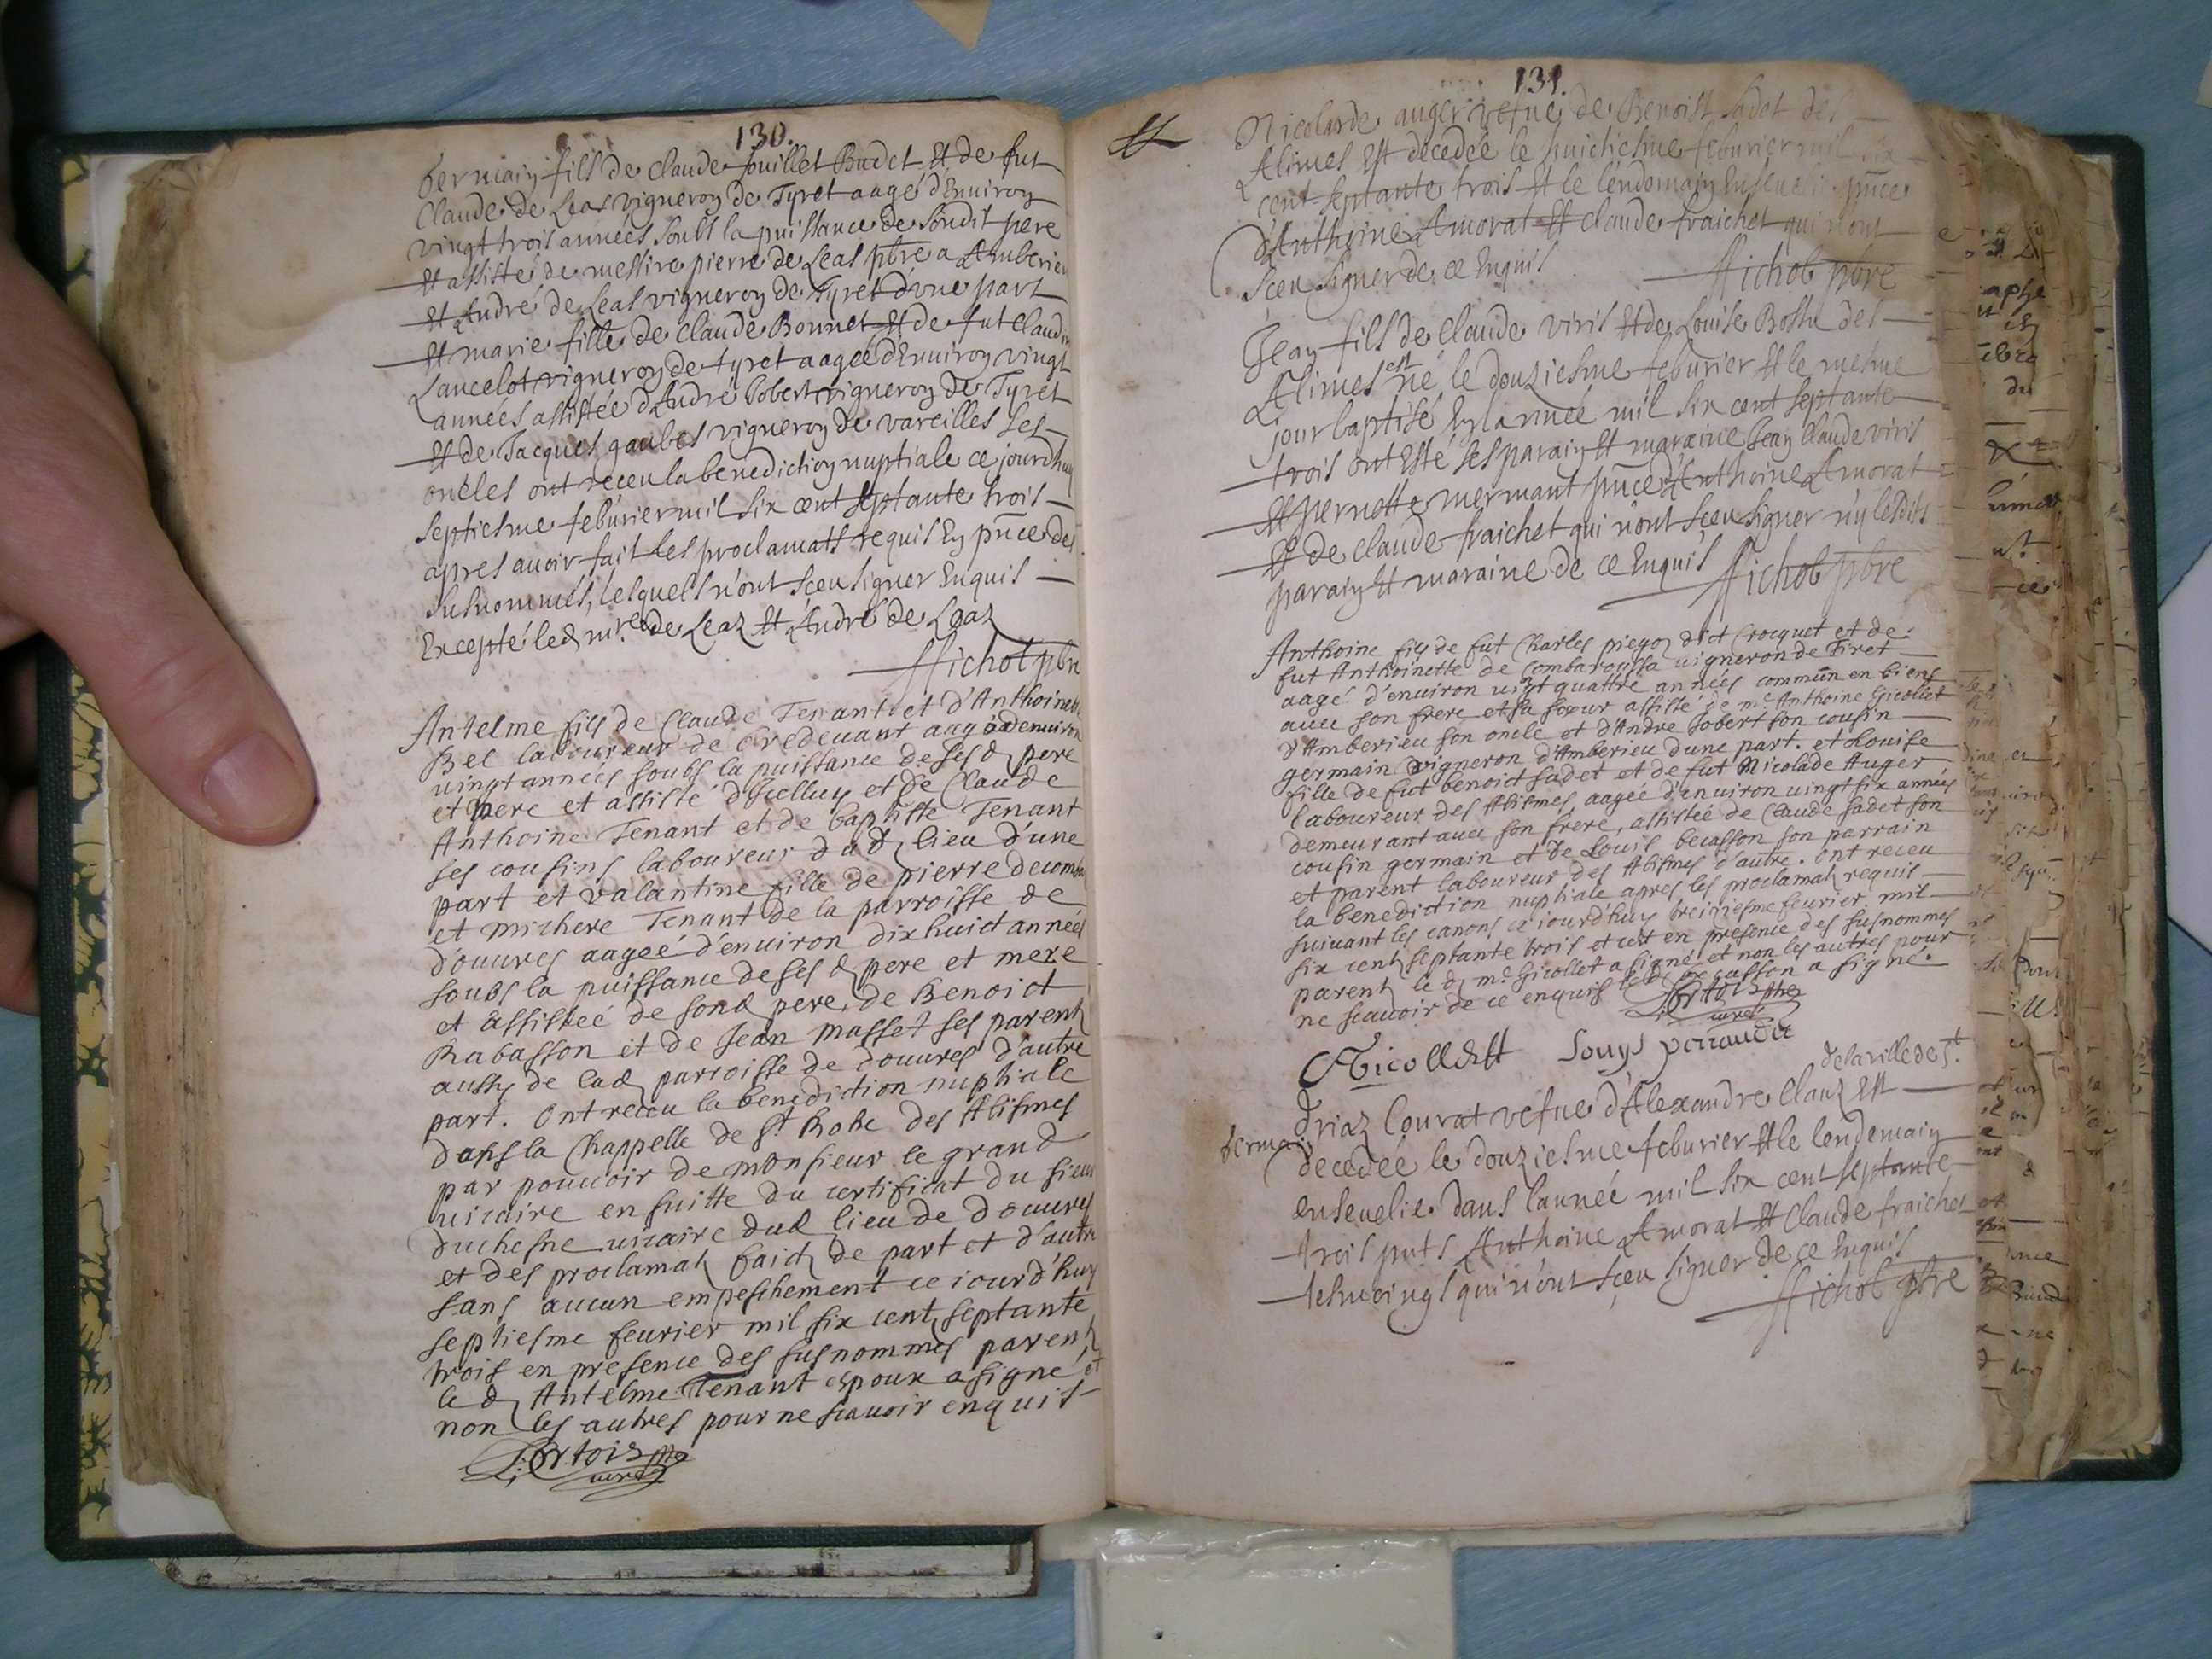 130.
Germain fils de Claude fouillet Budet Et de fut
Claude de Leas vigneron de Tyret aagé d'Enuiron
vingt trois années soubs la puissance de sondit pere
Et assisté de messire pierre de Leas pbre a Amberieu
Et André de Leas vigneron de Tyret d'vne part
Et marie fille de Claude Bonnet Et de fut Claudin
Lancelot vigneron de tyret aagée d'Enuiron vingt
années assistée d'André Jobert vigneron de Tyret
Et de Jacques gaubes vigneron de vareilles ses
oncles ont receu la benediction nuptiale ce jourdhuy
septiesme feburier mil six cent septante trois
apres auoir fait les proclamats requis En pnce des
susnommés, lesquels n'ont sceu signer Enquis
Excepté led mre de Leaz Et André de Leaz
Michot pbre
Antelme fils de Claude Tenant et d'Anthoinette
Bel laboureur de bredeuant aagé denuiron
uingt années soubs la puissance de ses d pere
et mere et assisté d'Icelluy et de Claude
Anthoine Tenant et de baptiste Tenant
ses cousins laboureur du d lieu d'une
part et valantine fille de pierre decomba
et michere Tenant de la parroisse de
douures aageé d'enuiron dix huict années
soubs la puissance de ses d pere et mere
et assistée de sond pere, de Benoict
Rabasson et de Jean masset ses parents
aussy de lad parroisse de douures d'autre
part. Ont receu la benediction nuptiale
dans la Chappelle de St Roke des Abismes
par pouuoir de monsieur le grand
uicaire en suitte du certificat du sieur
duchesne uicaire dud lieu de douures
et des proclamat faict de part et d'autre
sans aucun empeschement ce iourd'huy
septiesme feurier mil six cent septante
trois en presence des susnommes parent
le d Antelme Tenant espoux a signé et
non les autres pour ne scauoir enquis
Portois pbre
curé
131.
Nicolarde auger vefue de Benoist Sadet des
Abimes Est decedée le huictiesme feburier mil six
cent septante trois Et le lendemain Enseuelie pnce
d'Anthoine Amorat Et Claude fraichet qui n'ont
sceu signer de ce Enquis
Michot pbre
Jean fils de Claude viris Et de Louise Bossu des
Abimes est né le douziesme feburier Et le mesme
jour baptisé En l'année mil six cent septante
trois ont Esté ses parain Et maraine Jean Claude viris
Et pernette mermant pnce d'Anthoine Amorat
Et de Claude fraichet qui n'ont sceu signer n'y lesdits
parain Et maraine de ce Enquis
Michot pbre
Anthoine fils de fut Charles piegoz dict Crocquet et de
fut Anthoinette de Combaroussa uigneron de Tiret
aagé d'enuiron uint quattre années commun en biens
auec son frere et sa soeur assisté de mr Anthoine Gicollet
d'Amberieu son oncle et d'Andre Jobert son cousin
germain vigneron d'Amberieu dune part. et Louise
fille de fut benoict sadet et de fut Nicolade Auger
laboureur des Abismes, aagée d'enuiron uingt six années
demeurant auec son frere, assistée de Claude sadet son
cousin germain et de Louis becasson son parrain
et parent laboureur des Abismes d'autre. Ont receu
la benediction nuptiale apres les proclamat requis
suiuant les canons ce iourd'huy treiziesme feurier mil
six cent septante trois et cest en presence des susnommes
parent le d mr Gicollet a signé et non les autres pour
ne scauoir de ce enquis led becasson a signé.
Portois pbre
curé
Gicollett
de la ville de St
Germain
Triaz Courat vefue d'Alexandre Clauz Est
decedée le douziesme feburier Et le lendemain
enseuelie dans l'année mil six cent septante
trois pnts Anthoine Amorat Et Claude fraichet
tesmoings qui n'ont sceu signer de ce Enquis
Michot pbre